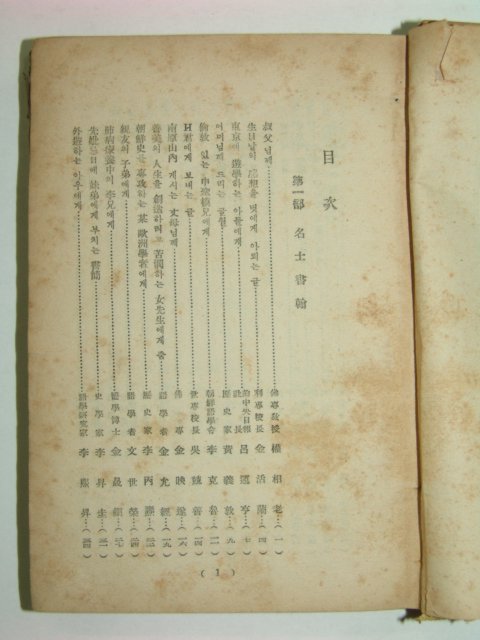 目次
第一部 名士書翰
叔父님께……佛專敎授 權相老…(一)
生日날의 感想을 벗에게 아뢰는 글……梨專校長 金活蘭…(四)
東京에 遊學하는 아들에게……前中央日報社長 呂運亨…(七)
어머님께 드리는 글월……歷史家 黃義敦…(九)
倫敦 있는 申建模兄에게……朝鮮語學會 李克魯…(一一)
H君에게 보내는 글……世專校長 吳兢善…(一四)
南原山內 계시는 丈母님께……佛專 金映遂…(一六)
善美의 人生을 創造하려고 苦悶하는 女先生에게 줌……語學者 金允經…(一九)
朝鮮史를 專攻하는 某 歐洲學者에게……歷史家 李丙燾…(二三)
親友의 子弟에게……語學者 文世榮…(二五)
肺病療養中의 李兄에게……醫學博士 金晟鎭…(二七)
先妣忌日에 妹弟에게 부치는 書簡……史學家 李昇生…(三一)
外遊하는 아우에게……語學硏究家 李熙昇…(三四)
( 1 )